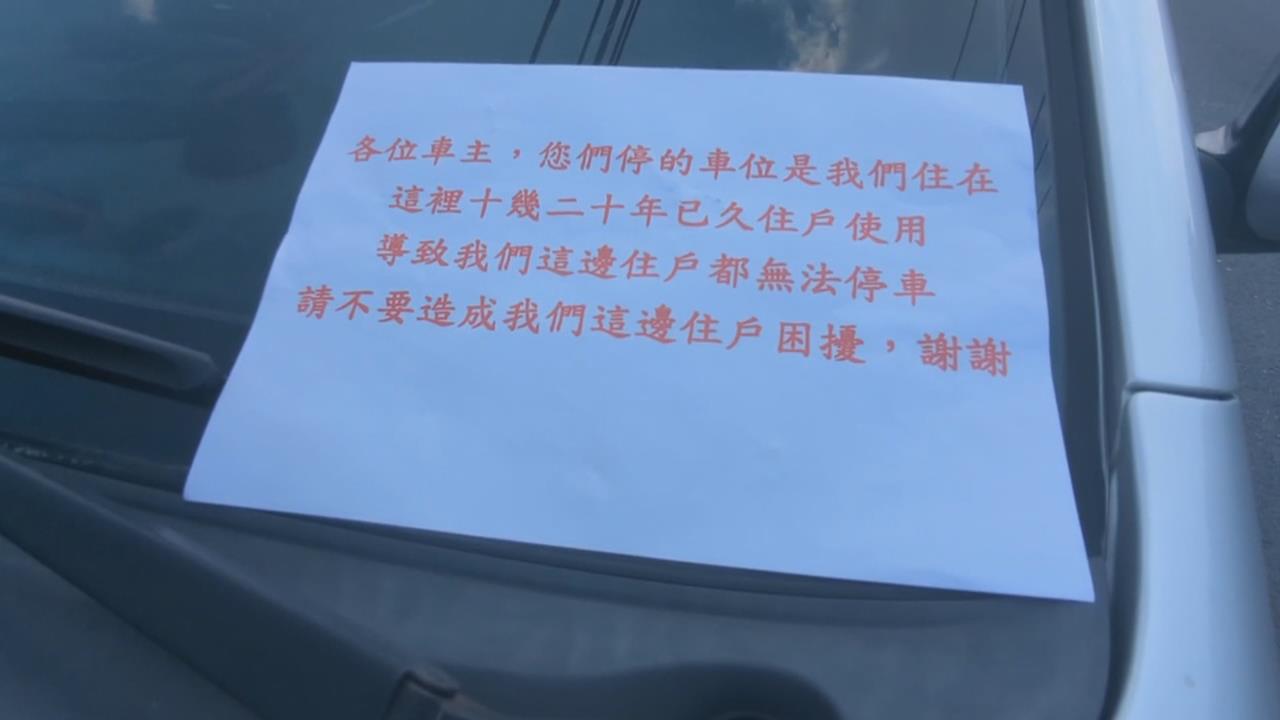 各位車主，您們停的車位是我們住在
這裡十幾二十年已久住戶使用
導致我們這邊住戶都無法停車
請不要造成我們這邊住戶困擾，謝謝